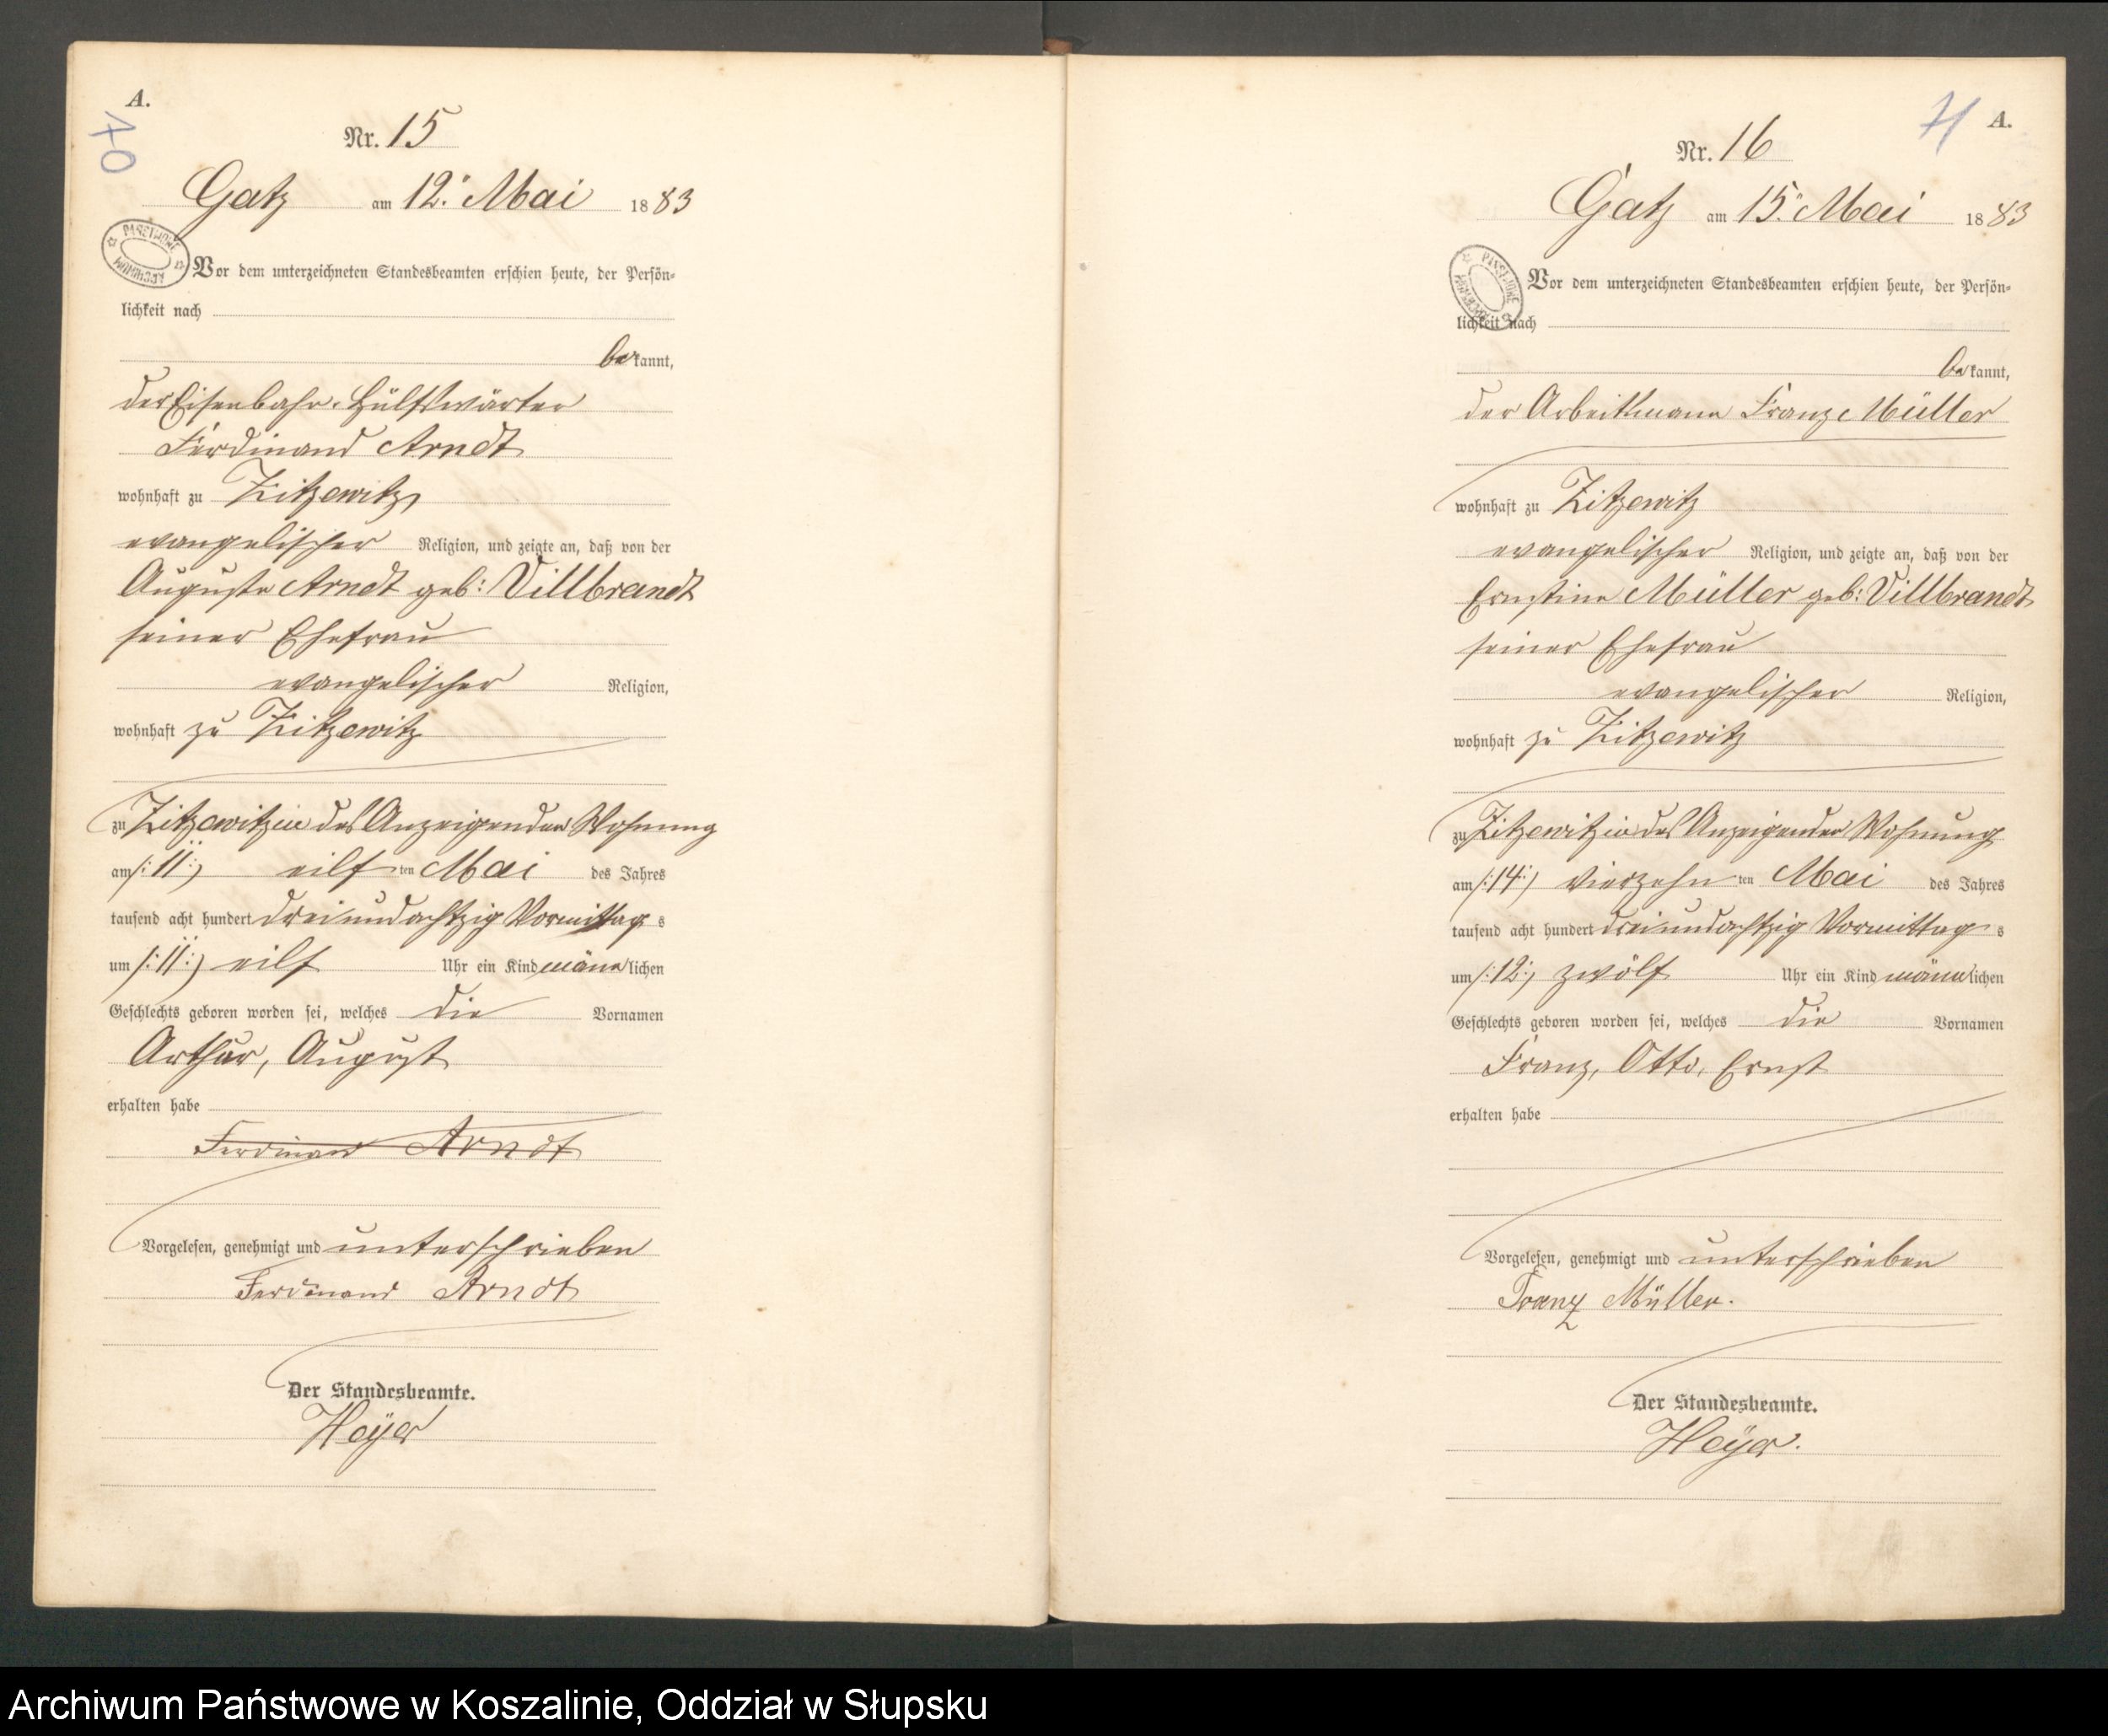 A.
10
Nr. 15
Gatz am 12. Mai 1883
Vor dem unterzeichneten Standesbeamten erschien heute, der Persön-
lichkeit nach
bekannt,
der Eisenbahn-Hülfswärter
Ferdinand Arndt
wohnhaft zu Zitzewitz
evangelischer Religion, und zeigte an, daß von der
Auguste Arndt geb: Villbrandt
seiner Ehefrau
evangelischer Religion,
wohnhaft zu Zitzewitz
zu Zitzewitz in des Anzeigenden Wohnung
am /:11:/ eilften Mai des Jahres
tausend acht hundert dreiundachtzig Vormittags
um /:11:/ eilf Uhr ein Kind männlichen
Geschlechts geboren worden sei, welches die Vornamen
Arthur, August
erhalten habe
Ferdinand Arndt
Vorgelesen, genehmigt und unterschrieben
Ferdinand Arndt
Der Standesbeamte.
Heÿer
71 A.
Nr. 16
Gatz am 15. Mai 1883
Vor dem unterzeichneten Standesbeamten erschien heute, der Persön-
lichkeit nach
bekannt,
der Arbeitsmann Franz Müller
wohnhaft zu Zitzewitz
evangelischer Religion, und zeigte an, daß von der
Ernstine Müller geb: Villbrandt
seiner Ehefrau
evangelischer Religion,
wohnhaft zu Zitzewitz
zu Zitzewitz in des Anzeigenden Wohnung
am /:14:/ vierzehnten Mai des Jahres
tausend acht hundert dreiundachtzig Vormittags
um /:12:/ zwölf Uhr ein Kind männlichen
Geschlechts geboren worden sei, welches die Vornamen
Franz, Otto, Ernst
erhalten habe
Vorgelesen, genehmigt und unterschrieben
Franz Müller.
Der Standesbeamte.
Heÿer.
Archiwum Państwowe w Koszalinie, Oddział w Słupsku